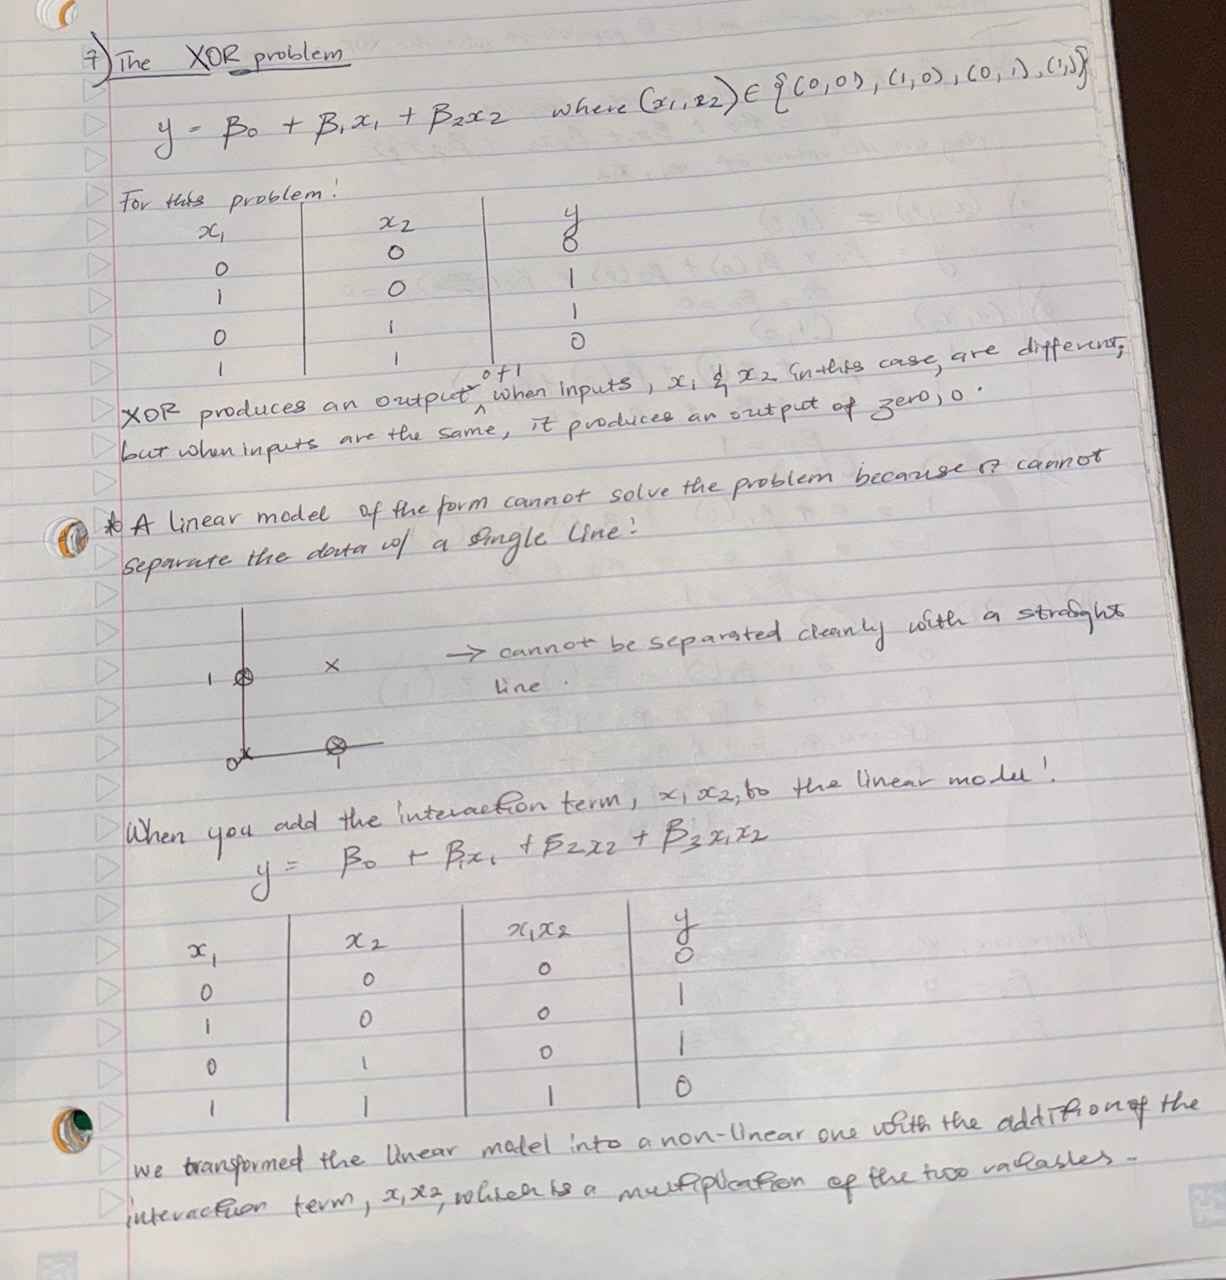 7) The XOR problem
y = β₀ + β₁x₁ + β₂x₂ where (x₁, x₂) ∈ {(0,0), (1,0), (0,1), (1,1)}
For this problem:
x₁ x₂ y
0 0 0
1 0 1
0 1 1
1 1 0
of 1
XOR produces an output ^ when inputs, x₁ & x₂ in this case, are different;
but when inputs are the same, it produces an output of zero, 0.
* A linear model of the form cannot solve the problem because it cannot
separate the data w/ a single line:
1 x → cannot be separated cleanly with a straight
line.
0 1
When you add the interaction term, x₁x₂, to the linear model:
y = β₀ + β₁x₁ + β₂x₂ + β₃x₁x₂
x₁ x₂ x₁x₂ y
0 0 0 0
1 0 0 1
0 1 0 1
1 1 1 0
we transformed the linear model into a non-linear one with the addition of the
interaction term, x₁x₂, which is a multiplication of the two variables.